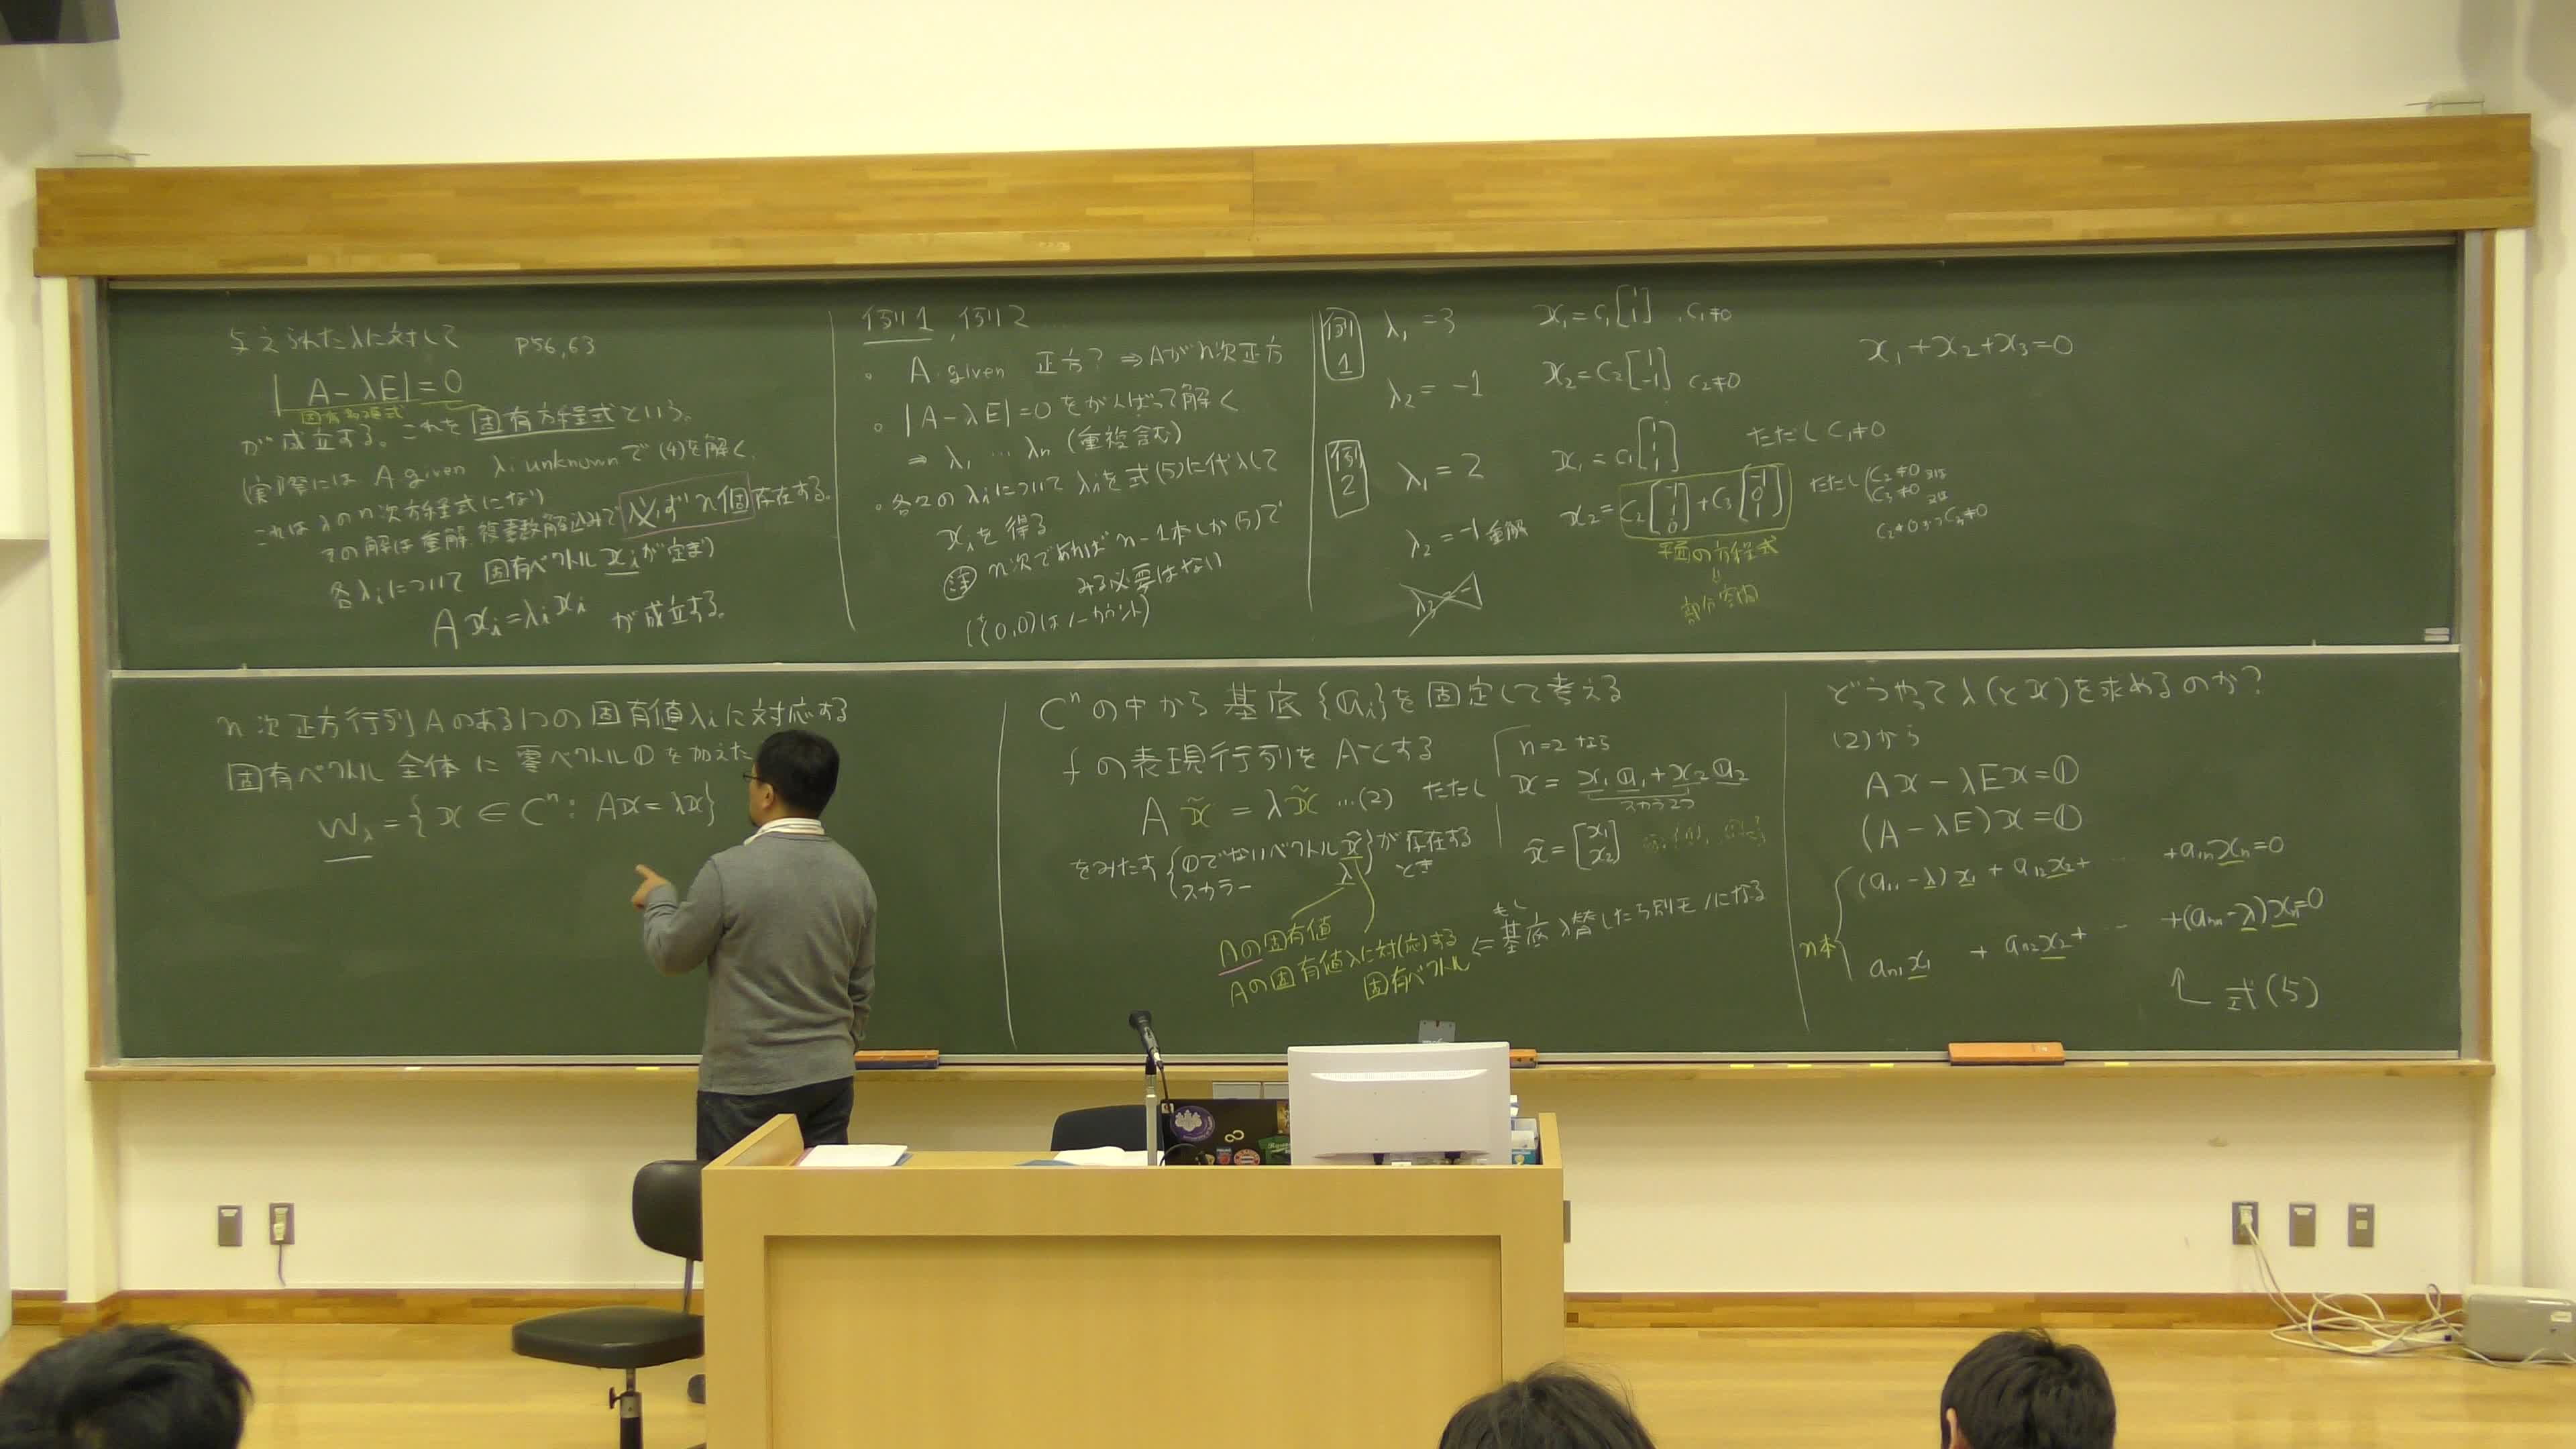 与えられたλに対して P56,63
|A-λE|=0
固有多項式
が成立する。これを固有方程式という。
(実際には A given λ: unknownで(4)を解く。
これはλのn次方程式になり
その解は重解、複素数解込みで必ずn個存在する。
各λiについて 固有ベクトルxiが定まり
Axi=λixi が成立する。
例1, 例2
・ A given 正方? ⇒Aがn次正方
・ |A-λE|=0をがんばって解く
⇒ λ1 … λn (重複含む)
・各々のλiについてλiを式(5)に代入して
xiを得る
注 n次であればn-1本しか(5)で
みる必要はない
(t(0,0)はノーカウント)
例1 λ1=3 x1=c1[1 1], c1≠0
λ2=-1 x2=c2[1 -1] c2≠0
x1+x2+x3=0
例2 λ1=2 x1=c1[1 1 1] ただし c1≠0
λ2=-1重解 x2=c2[-1 1 0]+c3[-1 0 1] ただし(c2≠0 または c3≠0 または
c2≠0かつc3≠0
平面の方程式
部分空間
λ3=-1
n次正方行列Aのある1つの固有値λiに対応する
固有ベクトル全体に零ベクトル0を加えた
Wλ={x∈C^n: Ax=λx}
C^nの中から基底{ai}を固定して考える
fの表現行列をAとする
Ax̃=λx̃ …(2) ただし
をみたす{0でないベクトルx̃ が存在する
スカラー λ とき
Aの固有値
Aの固有値λに対(応)する
固有ベクトル
⇐もし基底入替したら別モノになる
n=2なら
x=x1a1+x2a2
スカラ2つ
x̃=[x1 x2]
どうやってλ(とx)を求めるのか?
(2)から
Ax-λEx=0
(A-λE)x=0
(a11-λ)x1+a12x2+ … +a1nxn=0
n本
an1x1 + an2x2+ … +(ann-λ)xn=0
式(5)